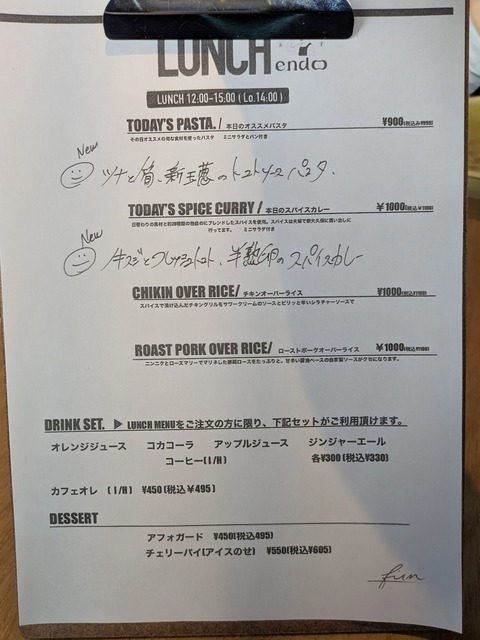 LUNCH
endo
LUNCH 12:00-15:00 (Lo.14:00)
TODAY'S PASTA./ 本日のオススメパスタ ¥900(税込み990)
その日オススメの旬な食材を使ったパスタ ミニサラダとパン付き
New
ツナと筍、新玉葱のトマトソースパスタ.
TODAY'S SPICE CURRY/ 本日のスパイスカレー ¥1000(税込¥1100)
日替わりの食材と約28種類の独自のにブレンドしたスパイスを使用。スパイスは夫婦で新大久保に買い出しに
行ってます。 ミニサラダ付き
New
牛スジとフレッシュトマト、半熟卵のスパイスカレー
CHIKIN OVER RICE/ チキンオーバーライス ¥1000(税込¥1100)
スパイスで漬け込んだチキングリルをサワークリームのソースとピリッと辛いシラチャーソースで
ROAST PORK OVER RICE/ ローストポークオーバーライス ¥1000(税込¥1100)
ニンニクとローズマリーでマリネした豚肩ロースをたっぷりと。甘辛い醤油ベースの自家製ソースがクセになります。
DRINK SET. ▶ LUNCH MENUをご注文の方に限り、下記セットがご利用頂けます。
オレンジジュース コカコーラ アップルジュース ジンジャーエール
コーヒー( I / H ) 各¥300(税込¥330)
カフェオレ ( I / H ) ¥450(税込¥495)
DESSERT
アフォガード ¥450(税込495)
チェリーパイ(アイスのせ) ¥550(税込¥605)
fun